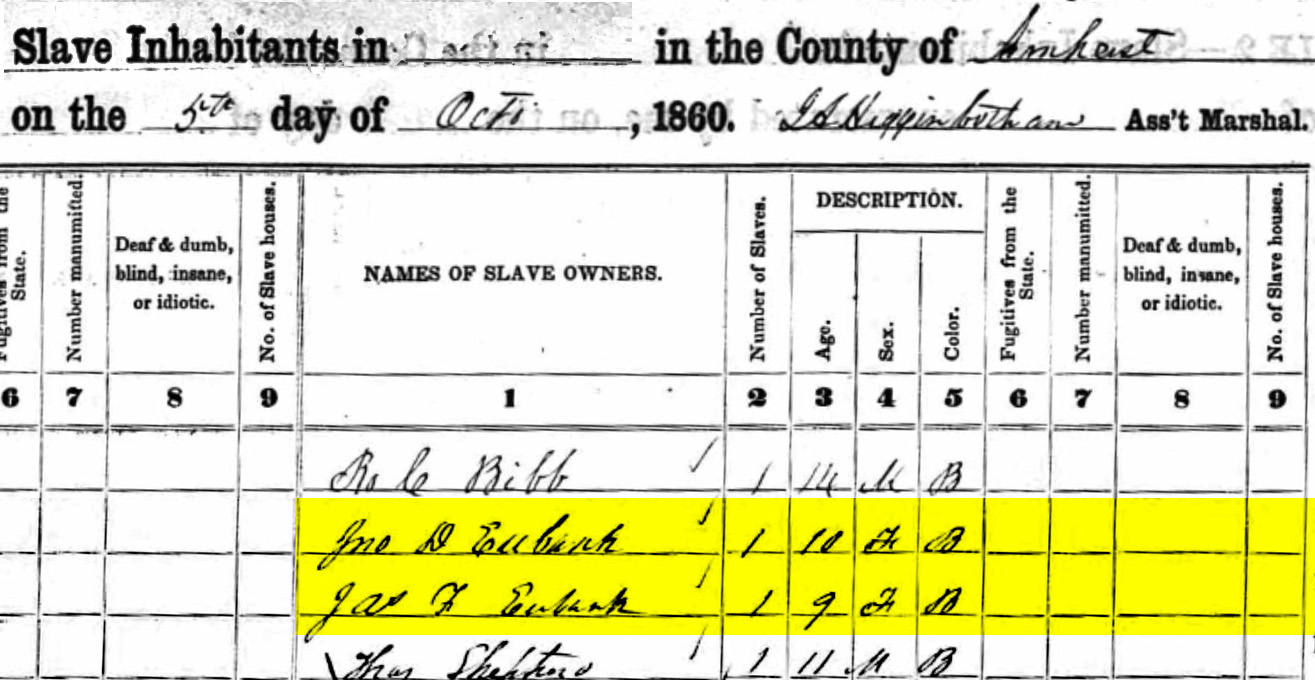 Slave Inhabitants in in the County of Amherst
on the 5th day of Octo, 1860. Higginbotham Ass't Marshal.
DESCRIPTION.
Fugitives from the State. Number manumitted. Deaf & dumb, blind, insane, or idiotic. No. of Slave houses. NAMES OF SLAVE OWNERS. Number of Slaves. Age. Sex. Color. Fugitives from the State. Number manumitted. Deaf & dumb, blind, insane, or idiotic. No. of Slave houses.
6 7 8 9 1 2 3 4 5 6 7 8 9
Ro C Bibb 1 14 M B
Jno D Eubank 1 10 F B
Jas F Eubank 1 9 F B
Thos 1 11 M B